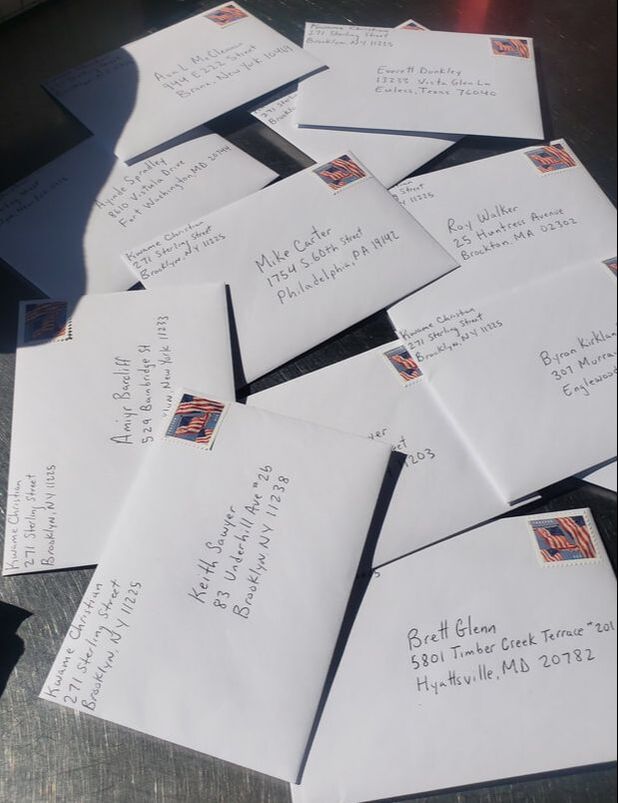 Asa L McClennon
944 E 222 Street
Bronx, New York 10469
Kwame Christian
271 Sterling Street
Brooklyn, NY 11225
Everett Dunkley
13233 Vista Glen Ln
Euless, Texas 76040
271 St
Brookl
Hynde Spradley
8610 Vistula Drive
Fort Washington, MD 20744
Kwame Christian
271 Sterling Street
Brooklyn, NY 11225
Mike Carter
1754 S. 60th Street
Philadelphia, PA 19142
Street
11225
Roy Walker
25 Huntress Avenue
Brockton, MA 02302
Kwame Christian
271 Sterling Street
Brooklyn, NY 11225
Byron Kirklan
307 Murra
Englewood
Kwame Christian
271 Sterling Street
Brooklyn, NY 11225
Amiyr Barcliff
529 Bainbridge St
New York 11233
yer
et
11203
Kwame Christian
271 Sterling Street
Brooklyn, NY 11225
Keith Sawyer
83 Underhill Ave #2b
Brooklyn, NY 11238
Brett Glenn
5801 Timber Creek Terrace #201
Hyattsville, MD 20782